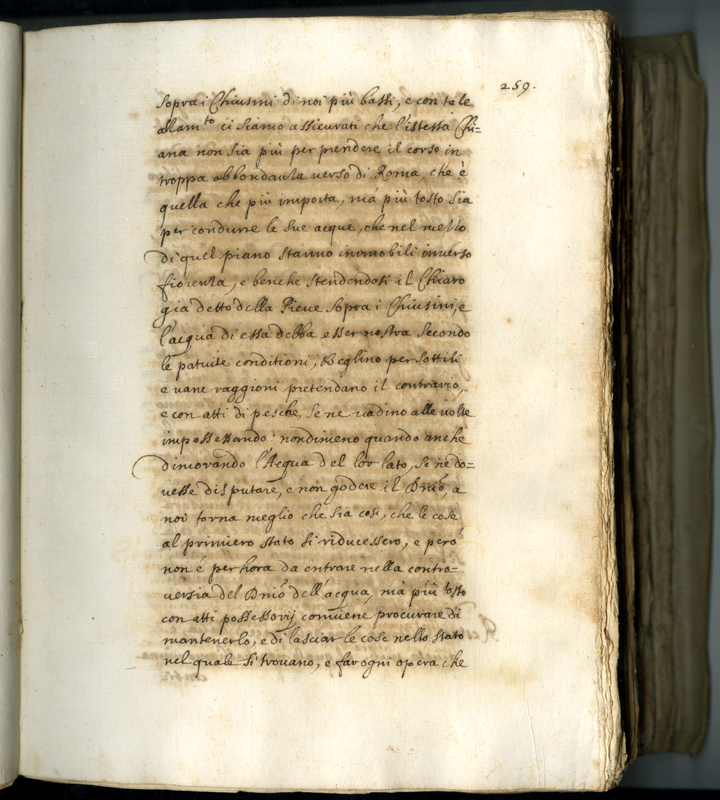 259.
sopra i Chiusini di noi più bassi, e con tale
allam.to ci siamo assicurati che l'istessa Chi=
ana non sia più per prendere il corso in
troppa abbondanza verso di Roma, che è
quella che più importa, mà più tosto sia
per condurre le sue acque, che nel mezzo
di quel piano stanno immobili inverso
fiorenza, e benche stendendosi il Chiaro
gia detto della Pieve sopra i Chiusini, e
l'acqua di essa debba esser nostra secondo
le patuite conditioni, & eglino per sottili
e vane raggioni pretendano il contrario,
e con atti di pesche, se ne vadino alle volte
impossessando: nondimeno quando anche
dimorando l'Acqua del lor lato, se ne do=
vesse disputare, e non godere il Dnio, a
noi torna meglio che sia così, che le cose
al primiero stato si riducessero, e però
non é per hora da entrare nella contro=
versia del Dnio dell'acqua, mà più tosto
con atti possessorij conviene procurare di
mantenerlo, e di lasciar le cose nello stato
nel quale si trovano, e far ogni opera che